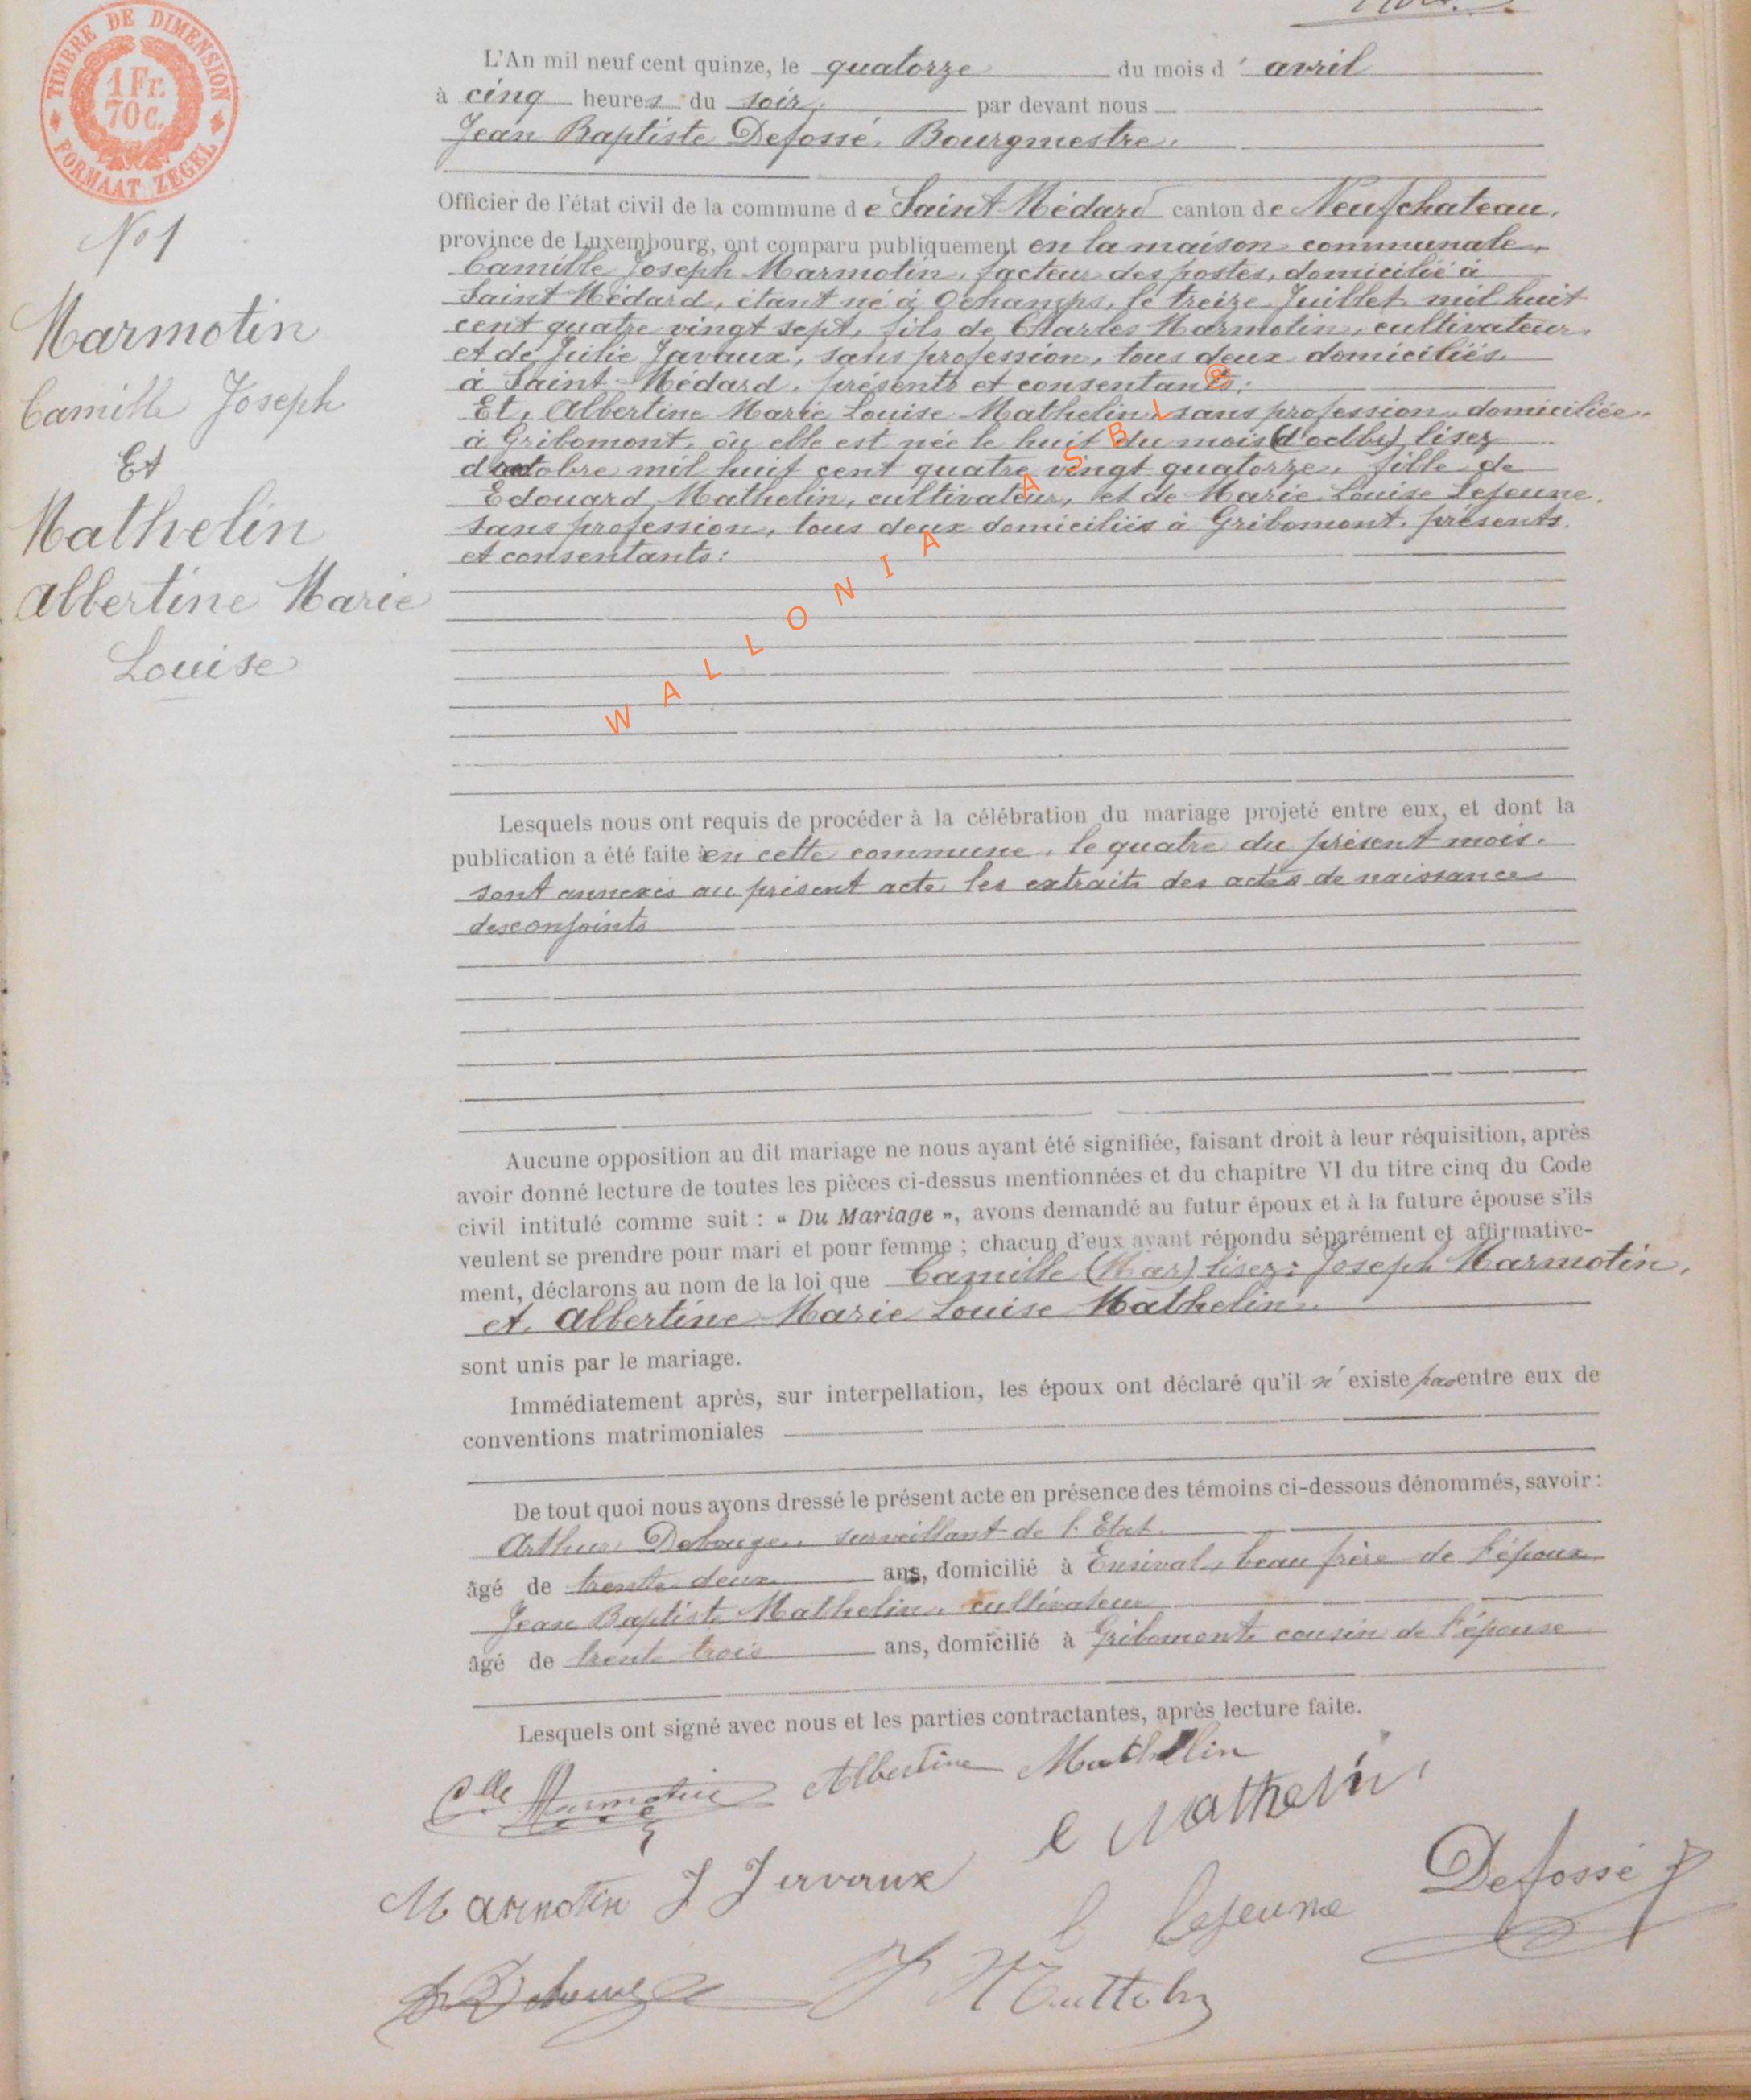 TIMBRE DE DIMENSION
1 Fr.
70 c.
FORMAAT ZEGEL
N° 1
Marmotin
Camille Joseph
Et
Mathelin
Albertine Marie
Louise
L'An mil neuf cent quinze, le quatorze du mois d' avril
à cinq heures du soir, par devant nous
Jean Baptiste Defossé, Bourgmestre,
Officier de l'état civil de la commune de Saint Médard canton de Neufchateau,
province de Luxembourg, ont comparu publiquement en la maison communale,
Camille Joseph Marmotin, facteur des postes, domicilié à
Saint Médard, étant né à Ochamps, le treize Juillet mil huit
cent quatre vingt sept, fils de Charles Marmotin, cultivateur,
et de Julie Javaux, sans profession, tous deux domiciliés
à Saint-Médard, présents et consentants;
Et, Albertine Marie Louise Mathelin, sans profession, domiciliée
à Gribomont, où elle est née le huit du mois (d'octbr) lisez
d'octobre mil huit cent quatre vingt quatorze, fille de
Edouard Mathelin, cultivateur, et de Marie Louise Lejeune,
sans profession, tous deux domiciliés à Gribomont, présents
et consentants:
WALLONIA ASBL ®
Lesquels nous ont requis de procéder à la célébration du mariage projeté entre eux, et dont la
publication a été faite à en cette commune, le quatre du présent mois.
sont annexés au présent acte les extraits des actes de naissance
des conjoints
Aucune opposition au dit mariage ne nous ayant été signifiée, faisant droit à leur réquisition, après
avoir donné lecture de toutes les pièces ci-dessus mentionnées et du chapitre VI du titre cinq du Code
civil intitulé comme suit : « Du Mariage », avons demandé au futur époux et à la future épouse s'ils
veulent se prendre pour mari et pour femme ; chacun d'eux ayant répondu séparément et affirmative-
ment, déclarons au nom de la loi que Camille (Mar) lisez: Joseph Marmotin,
et, Albertine Marie Louise Mathelin,
sont unis par le mariage.
Immédiatement après, sur interpellation, les époux ont déclaré qu'il n'existe pas entre eux de
conventions matrimoniales
De tout quoi nous avons dressé le présent acte en présence des témoins ci-dessous dénommés, savoir :
Arthur Debouge, surveillant de l'Etat
âgé de trente deux ans, domicilié à Ensival, beau frère de l'époux
Jean Baptiste Mathelin, cultivateur
âgé de trente trois ans, domicilié à Gribomont, cousin de l'épouse
Lesquels ont signé avec nous et les parties contractantes, après lecture faite.
Clle Marmotin Albertine Mathelin
e Mathelin
Marmotin J Javaux
l Lejeune Defossé